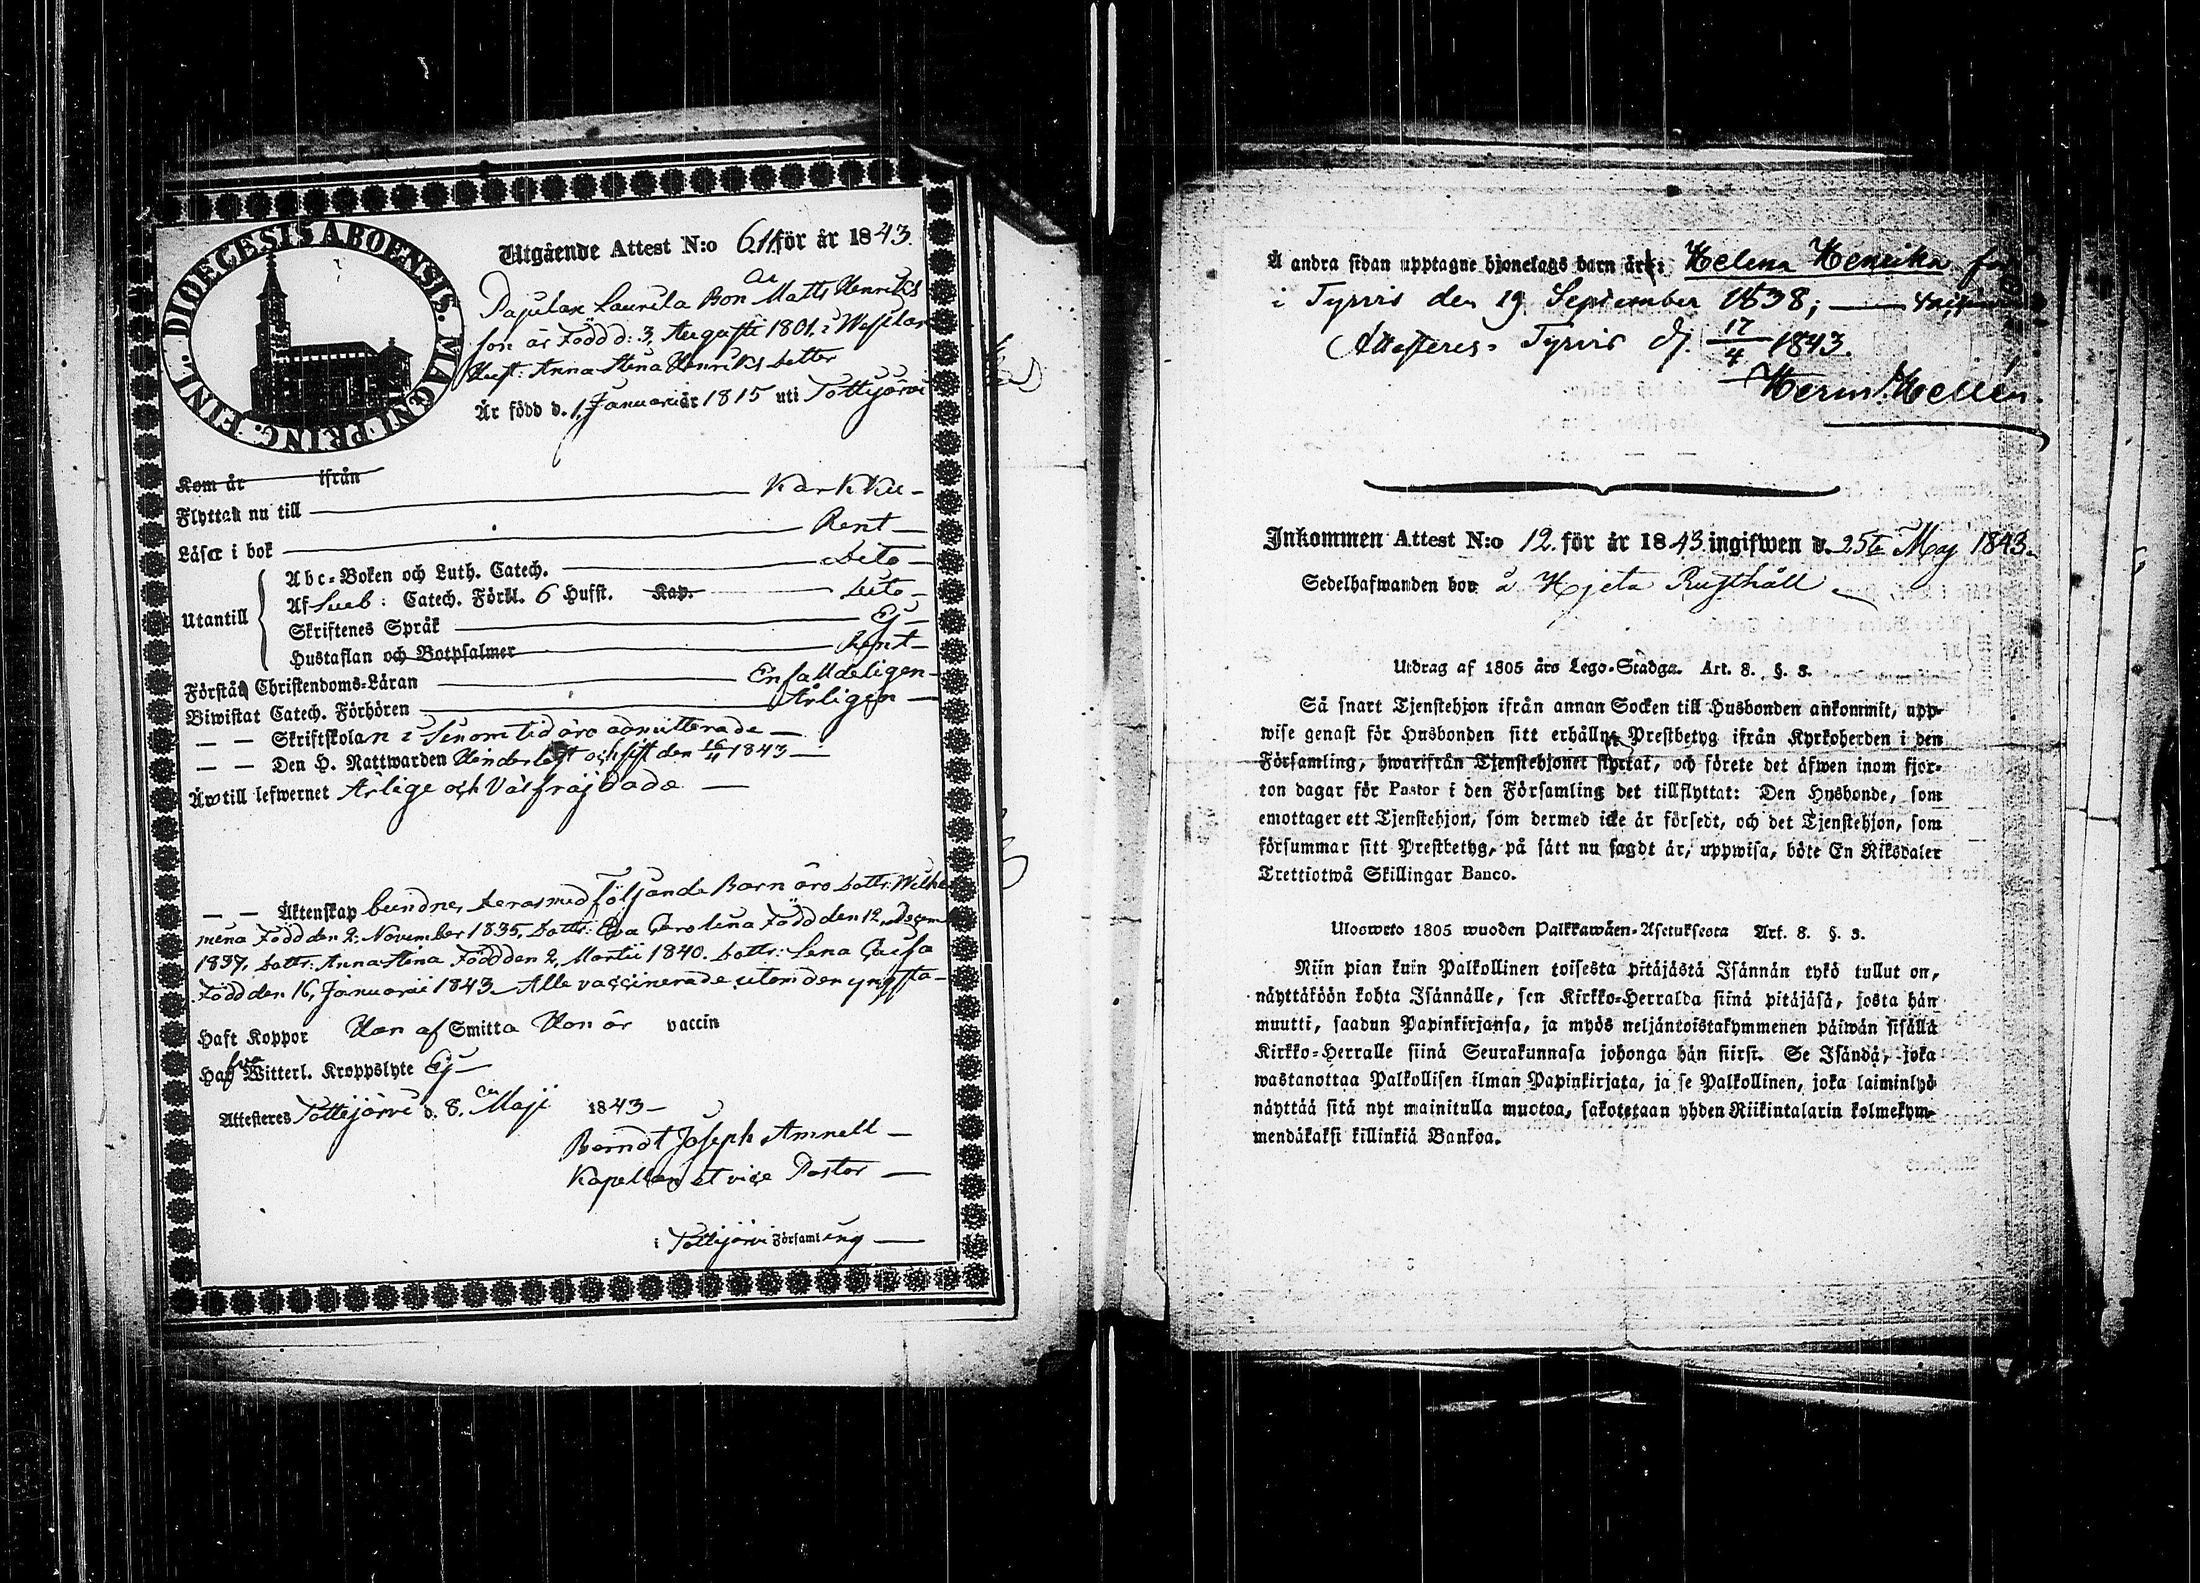 DIOECESIS ABOENSIS. MAGNI PRINC. FINL.
Utgående Attest N:o 6 för år 1843.
Matts Henriks
son är Född d: 3, Augusti 1801. i
Hust: Anna Stina Henriks dotter
Är född d. 1, Januarii år 1815 uti Tottijärvi
Kom år ifrån
Flyttar nu till Karkku
Läser i bok Rent
Utantill
Abc-Boken och Luth. Catech. Dito
Af Sveb: Catech. Förkl. 6 Hufst. Kap. Dito
Skriftenes Språk Ej
Hustaflan och Botpsalmer Rent
Förstår Christendoms-Läran Enfalldeligen
Biwistat Catech. Förhören Årligen
— — Skriftskolan i Sinom tid äro admitterade
— — Den H. Nattwarden Hinderlöst och sist den 16/4 1843
Äro till lefwernet Ärlige och Välfräjdade
— — Äktenskap bundne, deras med följande Barn äro dottr: Wilhel
mina Född den 2. November 1835, Dottr: Eva Carolina Född den 12, Decemb
1837, Dottr: Anna Stina Född den 2, Martii 1840. Dottr: Lena Caisa
Född den 16, Januarii 1843. Alle vaccinerade utom den yngsta
Haft Koppor Han af Smitta Hon är vaccin
Hafva Witterl. Kroppslyte Ej
Attesteras Tottijärvi d. 8. Maji 1843
Berndt Joseph Amnell
Kapellan et vice Pastor
i Tottijärvi Församling
Å andra sidan upptagne hjonelags barn är: Helena Henrika
i Tyrvis den 19 September 1838;
Attesteras. Tyrvis d. 17/4 1843.
Herm. Hellén.
Inkommen Attest N:o 12. för år 1843 ingifwen d. 25te Maj 1843.
Sedelhafwanden bor å Hjeta Rusthåll
Utdrag af 1805 års Lego-Stadga. Art. 8. §. 3.
Så snart Tjenstehjon ifrån annan Socken till Husbonden ankommit, upp-
wise genast för Husbonden sitt erhållne Prestbetyg ifrån Kyrkoherden i den
Församling, hwarifrån Tjenstehjonet flyttat, och förete det äfwen inom fjor-
ton dagar för Pastor i den Församling det tillflyttat: Den Husbonde, som
emottager ett Tjenstehjon, som dermed icke är försedt, och det Tjenstehjon, som
försummar sitt Prestbetyg, på sätt nu sagdt är, uppwisa, böte En Riksdaler
Trettiotwå Skillingar Banco.
Uloswето 1805 wuoden Palkkawäen-Asetuksesta Art. 8. §. 3.
Niin pian kuin Palkollinen toisesta pitäjästä Isännän tykö tullut on,
näyttäköön kohta Isännälle, sen Kirkko-Herralda siinä pitäjäsä, josta hän
muutti, saadun Papinkirjansa, ja myös neljäntoistakymmenen päiwän sisällä
Kirkko-Herralle siinä Seurakunnasa johonga hän siirsi. Se Isändä, joka
wastanottaa Palkollisen ilman Papinkirjata, ja se Palkollinen, joka laiminlyö
näyttää sitä nyt mainitulla muotoa, sakotetaan yhden Riikintalarin kolmekym-
mendäkaksi killinkiä Bankoa.